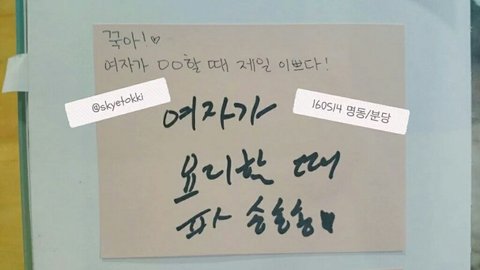 꾹아!♥
여자가 ㅁㅁ할 때 제일 이쁘다!
@skyetokki
160514 명동/분당
여자가
요리할 때
파 송송송♥